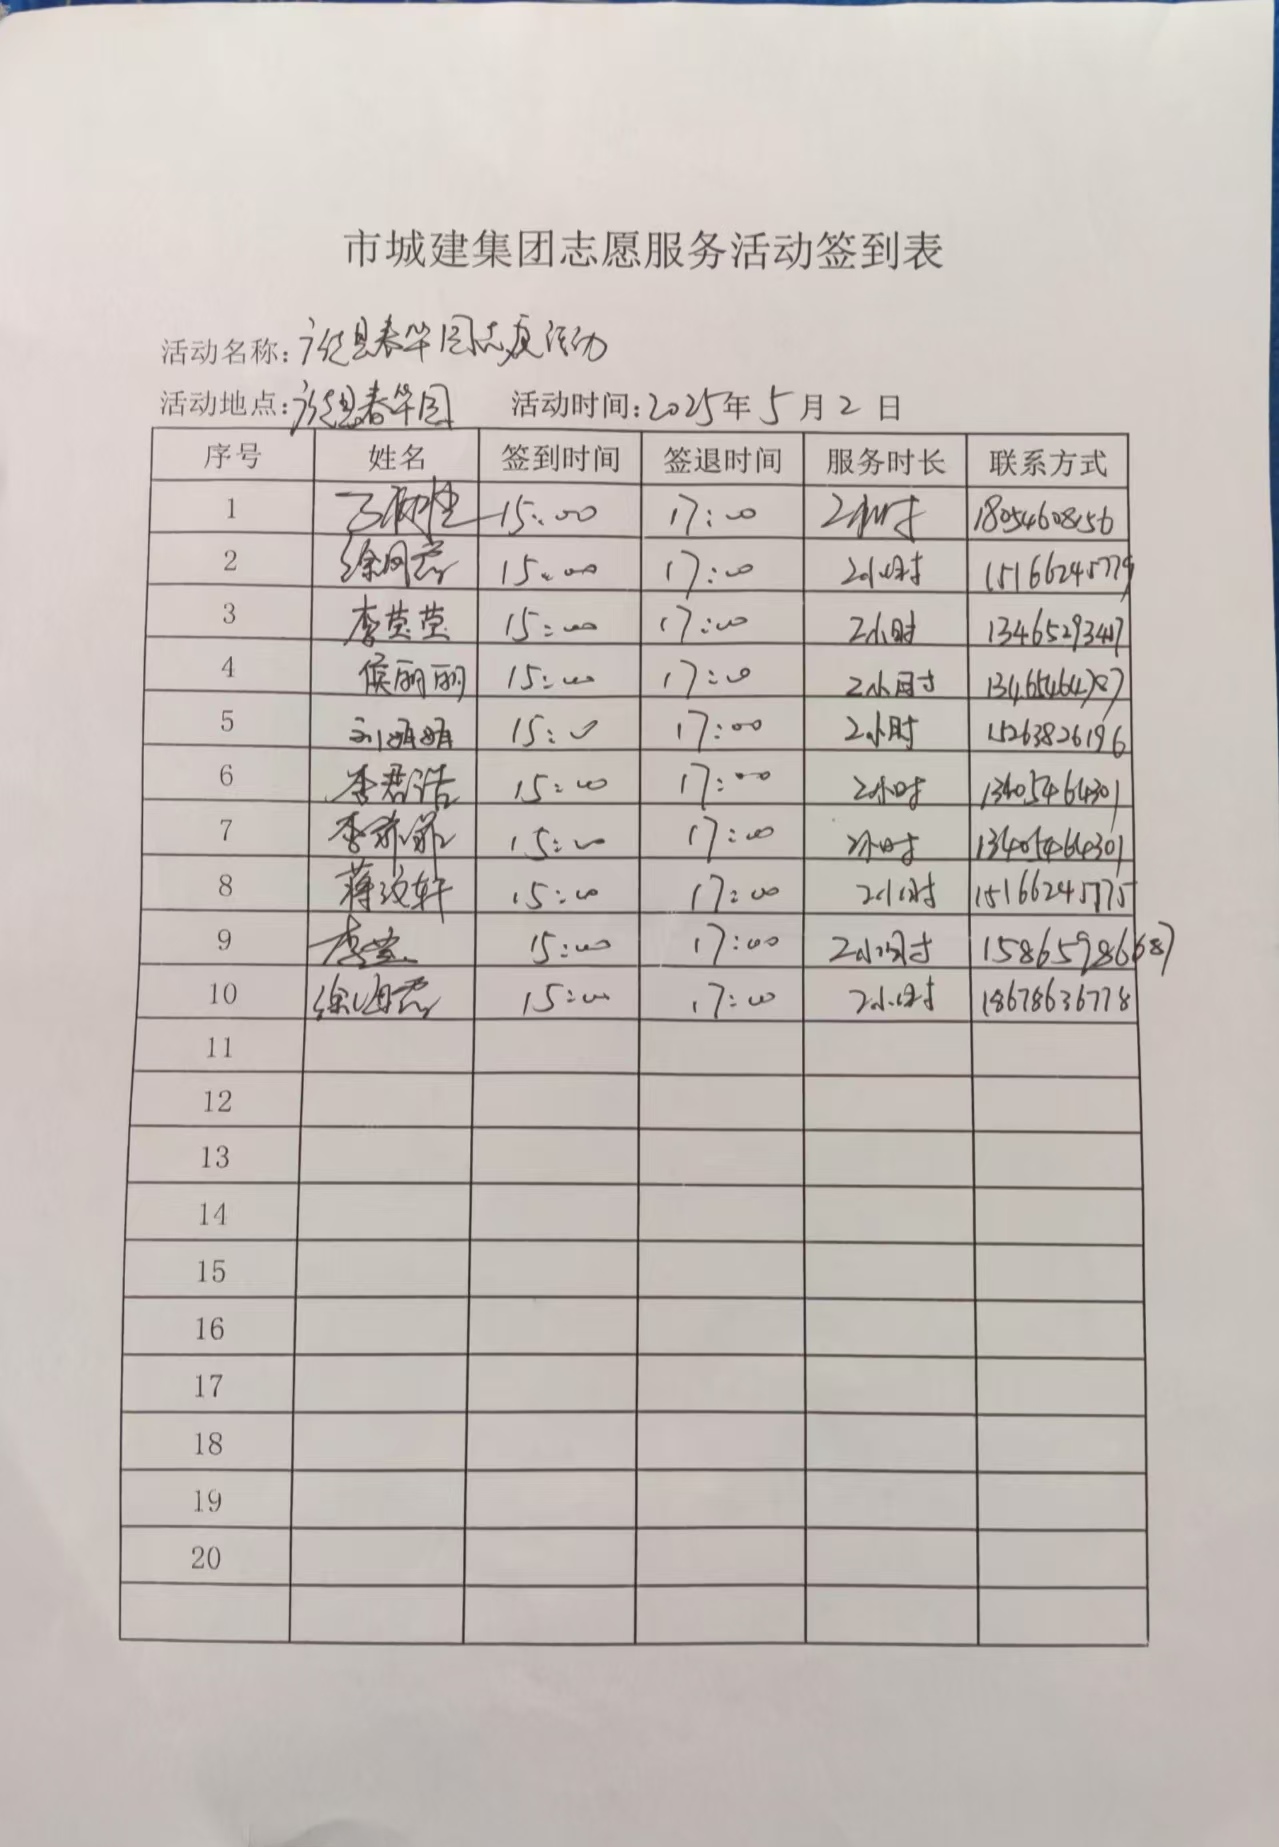 市城建集团志愿服务活动签到表
活动名称:广饶县春华园志愿活动
活动地点:广饶县春华园 活动时间:2025年5月2日
序号 姓名 签到时间 签退时间 服务时长 联系方式
1 15:00 17:00 2小时 18054608156
2 徐 15:00 17:00 2小时 15166245779
3 李莹莹 15:00 17:00 2小时
4 侯丽丽 15:00 17:00 2小时 13465464787
5 刘娟娟 15:00 17:00 2小时 15263826196
6 李君浩 15:00 17:00 2小时 13405464301
7 李 15:00 17:00 2小时 13405464301
8 蒋汶轩 15:00 17:00 2小时 15166245775
9 李 15:00 17:00 2小时 15865986687
10 徐 15:00 17:00 2小时 18678636778
11
12
13
14
15
16
17
18
19
20